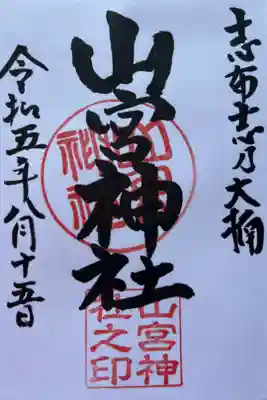 志布志乃大楠
山宮神社
令和五年八月十五日
山宮神
社之印